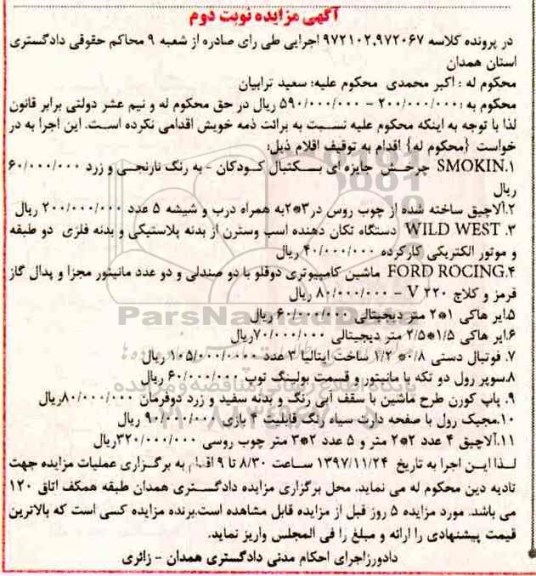 آگهی مزایده نوبت دوم
در پرونده کلاسه ۹۷۲۱۰۲،۹۷۲۰۶۷ اجرایی طی رای صادره از شعبه ۹ محاکم حقوقی دادگستری
استان همدان
محکوم له : اکبر محمدی محکوم علیه: سعید ترابیان
محکوم به : ۲۰۰/۰۰۰/۰۰۰ – ۵۹۰/۰۰۰/۰۰۰ ریال در حق محکوم له و نیم عشر دولتی برابر قانون
لذا با توجه به اینکه محکوم علیه نسبت به برائت ذمه خویش اقدامی نکرده است. این اجرا به در
خواست {محکوم له} اقدام به توقیف اقلام ذیل:
۱.SMOKIN چرخش جایزه ای بسکتبال کودکان - به رنگ نارنجی و زرد ۶۰/۰۰۰/۰۰۰
ریال
۲.آلاچیق ساخته شده از چوب روس در۳*۲به همراه درب و شیشه ۵ عدد ۲۰۰/۰۰۰/۰۰۰ ریال
۳. WILD WEST دستگاه تکان دهنده اسب وسترن از بدنه پلاستیکی و بدنه فلزی دو طبقه
و موتور الکتریکی کارکرده ۴۰/۰۰۰/۰۰۰ ریال
۴.FORD ROCING ماشین کامپیوتری دوقلو با دو صندلی و دو عدد مانیتور مجزا و پدال گاز
قرمز و کلاج ۲۲۰ V – ۸۰/۰۰۰/۰۰۰ ریال
۵.ایر هاکی ۱*۲ متر دیجیتالی ۶۰/۰۰۰/۰۰۰ ریال
۶.ایر هاکی ۱/۵*۲/۵ متر دیجیتالی ۷۰/۰۰۰/۰۰۰ریال
۷. فوتبال دستی ۰/۸* ۱/۲ ساخت ایتالیا ۳ عدد ۱۰۵/۰۰۰/۰۰۰ ریال
۸.سوپر رول دو تکه با مانیتور و قسمت بولینگ توپ ۶۰/۰۰۰/۰۰۰ ریال
۹. پاپ کورن طرح ماشین با سقف آبی رنگ و بدنه سفید و زرد دوفرمان ۸۰/۰۰۰/۰۰۰ریال
۱۰.مجیک رول با صفحه دارت سیاه رنگ قابلیت ۴ بازی ۹۰/۰۰۰/۰۰۰ ریال
۱۱.آلاچیق ۴ عدد ۲*۲ متر و ۵ عدد ۲*۳ متر چوب روسی ۳۲۰/۰۰۰/۰۰۰ریال
لذا این اجرا به تاریخ ۱۳۹۷/۱۱/۲۴ ساعت ۸/۳۰ تا ۹ اقدام به برگزاری عملیات مزایده جهت
تادیه دین محکوم له می نماید. محل برگزاری مزایده دادگستری همدان طبقه همکف اتاق ۱۲۰
می باشد. مورد مزایده ۵ روز قبل از مزایده قابل مشاهده است.برنده مزایده کسی است که بالاترین
قیمت پیشنهادی را ارائه و مبلغ را فی المجلس واریز نماید.
دادورزاجرای احکام مدنی دادگستری همدان - زائری
ParsNamadData